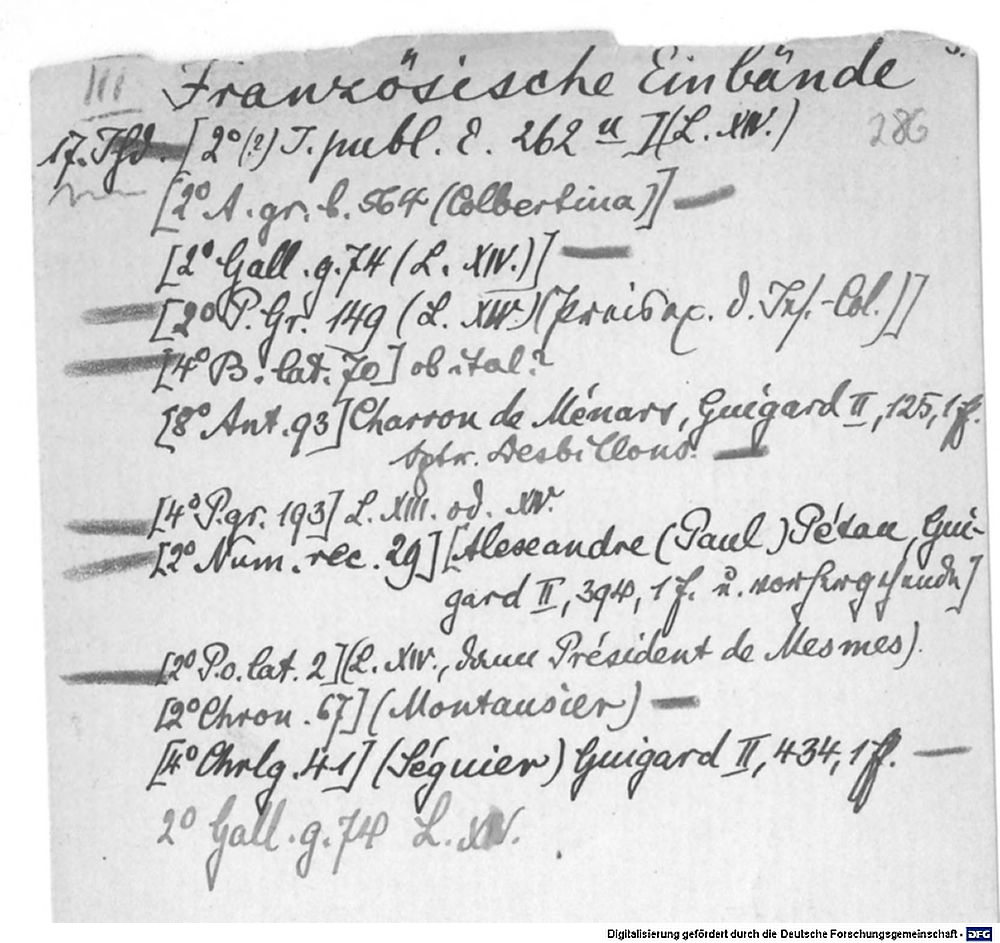 III Französische Einbände
286
17. Jhd. [2° (?) J. publ. E. 262 u I] (L. XIV.)
[2° A. gr. b. 564 (Colbertina)]
[2° Gall. g. 74 (L. XIV.)]
[2° P. Gr. 149 (L. XIV.) (Preisex. d. Jes.-Col.)]
[4° B. lat. 70] ob ital.?
[8° Ant. 93] Charron de Ménars, Guigard II, 125, 1 ff.
sptr. Desbillons.
[4° P. gr. 193] L. XIII. od. XIV.
[2° Num. rec. 29] [Alexandre (Paul) Pétau, Gui-
gard II, 394, 1 f. u. vorhergehende]
[2° P.o. lat. 2] (L. XIV., dann Président de Mesmes).
[2° Chron. 67] (Montausier)
[4° Chrlg. 41] (Séguier) Guigard II, 434, 1 ff.
2° Gall. g. 74 L. XIV.
Digitalisierung gefördert durch die Deutsche Forschungsgemeinschaft - DFG